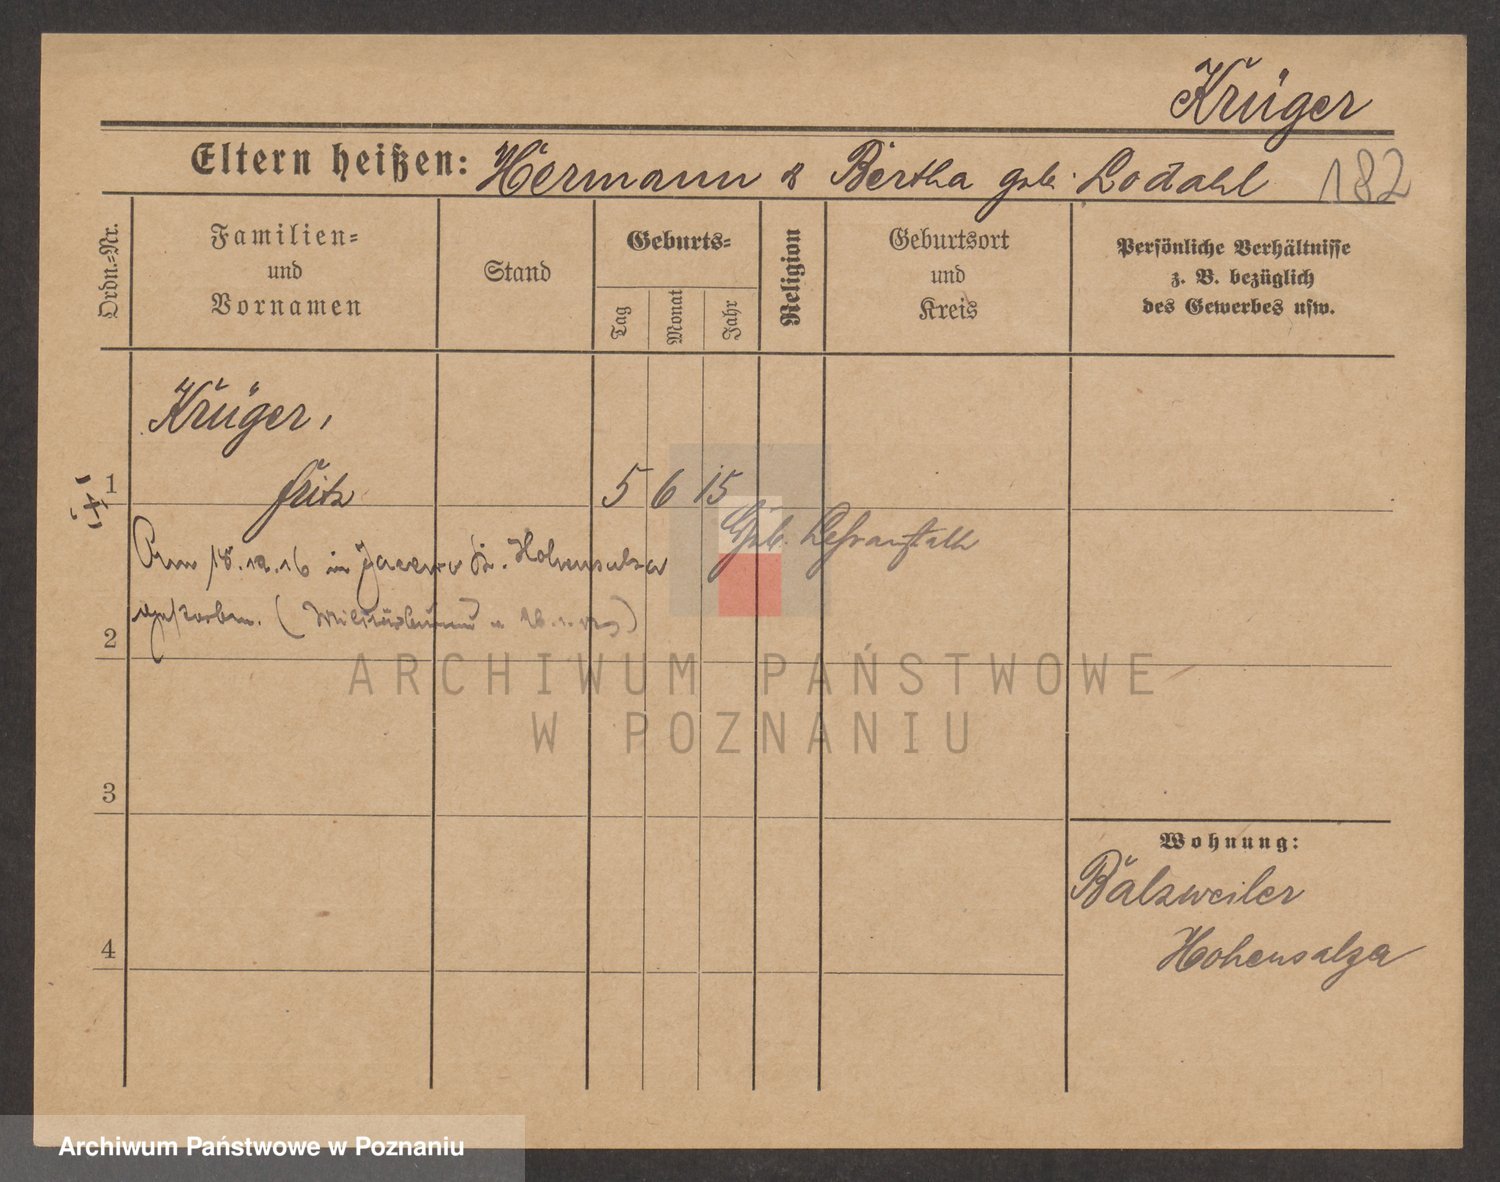 Krüger
Eltern heißen: Hermann & Bertha geb. Lodahl 182
Ordn.-Nr.
Familien-
und
Vornamen
Stand
Geburts-
Tag
Monat
Jahr
Religion
Geburtsort
und
Kreis
Persönliche Verhältnisse
z. B. bezüglich
des Gewerbes usw.
Krüger,
1 Fritz 5 6 15
Am 18.12.16 in Hohensalza
gestorben.
2
ARCHIWUM PAŃSTWOWE
W POZNANIU
3
Wohnung:
Balzweiler
4 Hohensalza
Archiwum Państwowe w Poznaniu